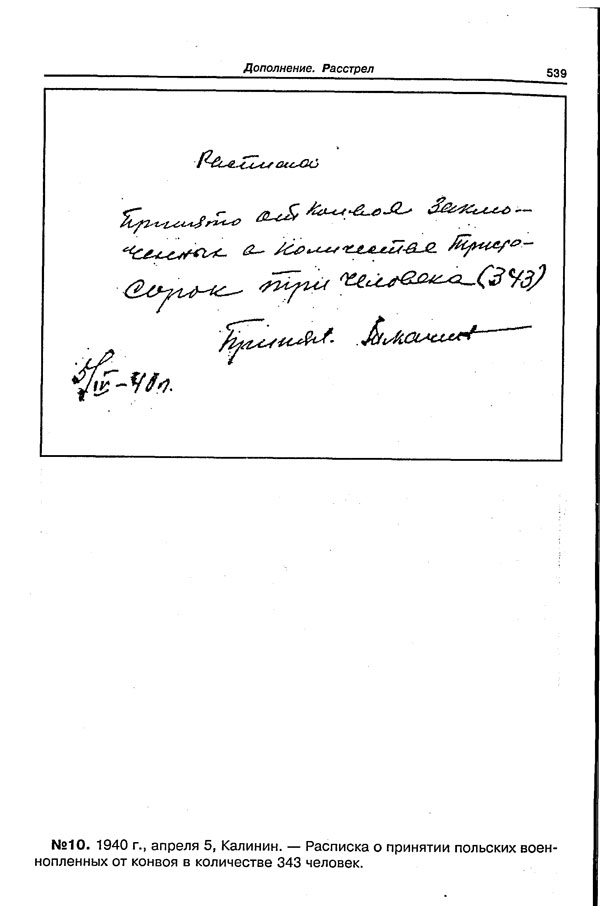 Дополнение. Расстрел
539
Расписка
Принято от конвоя Заклю-
ченных в количестве Триста-
Сорок три человека (343)
Принял.
5/IV-40г.
№10. 1940 г., апреля 5, Калинин. — Расписка о принятии польских воен-
нопленных от конвоя в количестве 343 человек.